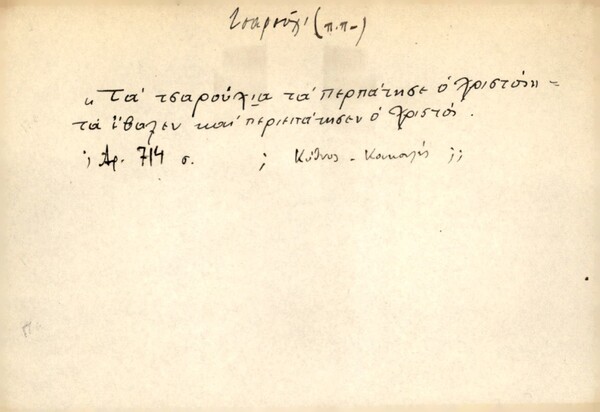 τσαρούχι (π.π.-)
« Τα τσαρούχια τα περπάτησε ο Χριστός» =
τα έβαλεν και περιεπάτησεν ο Χριστός.
; Αρ. 714 σ. ; Κύθνος - ;;